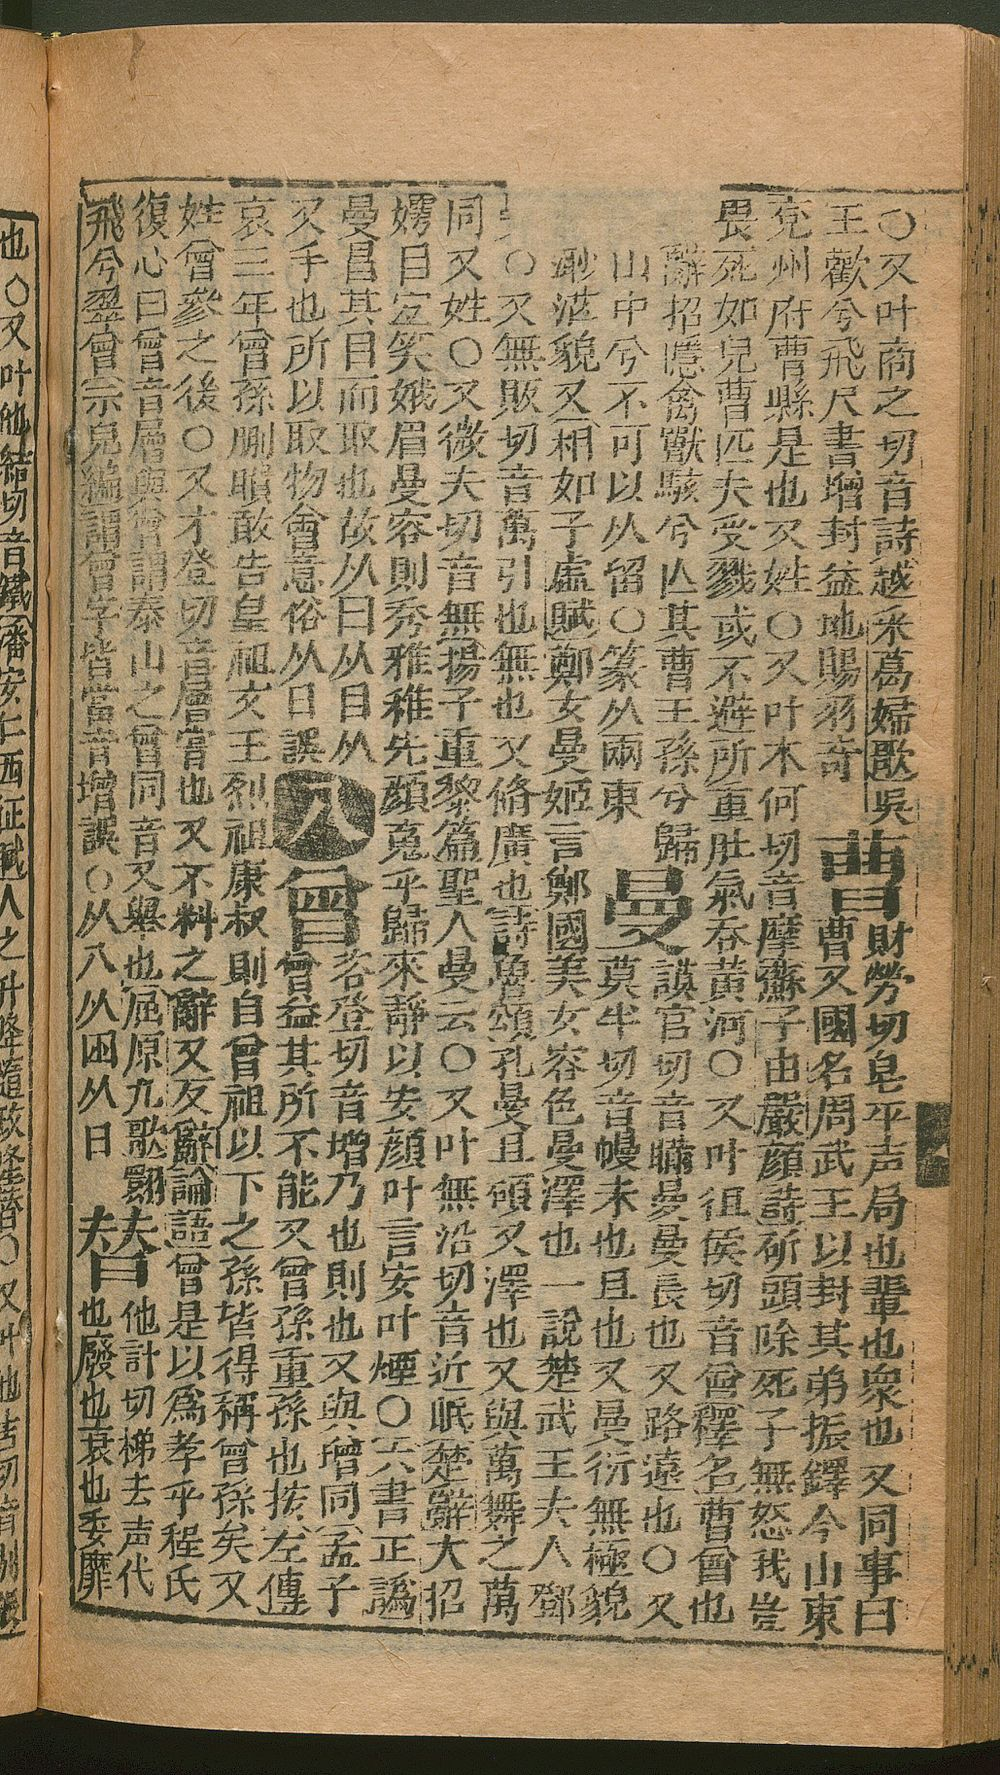 ○又叶商之切音詩越采葛婦歌吳
王歡兮飛尺書增封益地賜羽奇 曹 財勞切皂平声局也輩也衆也又同事曰曹又國名周武王以封其弟振鐸今山東
兗州府曹縣是也又姓○又叶木何切音摩蘇子由嚴顏詩斫頭除死子無怒我豈
畏死如兒曹匹夫受戮或不避所重壯氣吞黃河○又叶徂侯切音曾釋名曹曾也
辭招隱禽獸駭兮亾其曹王孫兮歸
山中兮不可以从留○篆从兩東 曼 謨官切音瞞曼曼長也又路遠也○又莫半切音幔末也且也又曼衍無極貌
漰滂貌又相如子虛賦鄭女曼姬言鄭國美女容色曼澤也一說楚武王夫人鄧
○又無販切音萬引也無也又脩廣也詩魯頌孔曼且碩又澤也又與萬舞之萬
同又姓○又微夫切音無揚子重黎篇聖人曼云○又叶無沿切音近眠楚辭大招
嫮目宜笑娥眉曼容則秀雅稚先顏䰟乎歸來靜以安顏叶言安叶煙○六書正譌
曼昌其目而取也故从曰从目从
又手也所以取物會意俗从日誤 八 曾 咨登切音增乃也則也又與增同孟子曾益其所不能又曾孫重孫也按左傳
哀三年曾孫蒯聵敢告皇祖文王烈祖康叔則自曾祖以下之孫皆得稱曾孫矣又
姓曾參之後○又才登切音層嘗也又不料之辭又反辭論語曾是以爲孝乎程氏
復心曰曾音層與曾謂泰山之曾同音又舉也屈原九歌翾
飛兮翠曾宗兒編謂曾字皆當音增誤○从八从囪从日 替 他計切梯去声代也廢也衰也委靡
也○又叶他結切音鐵潘安仁西征賦人之升降